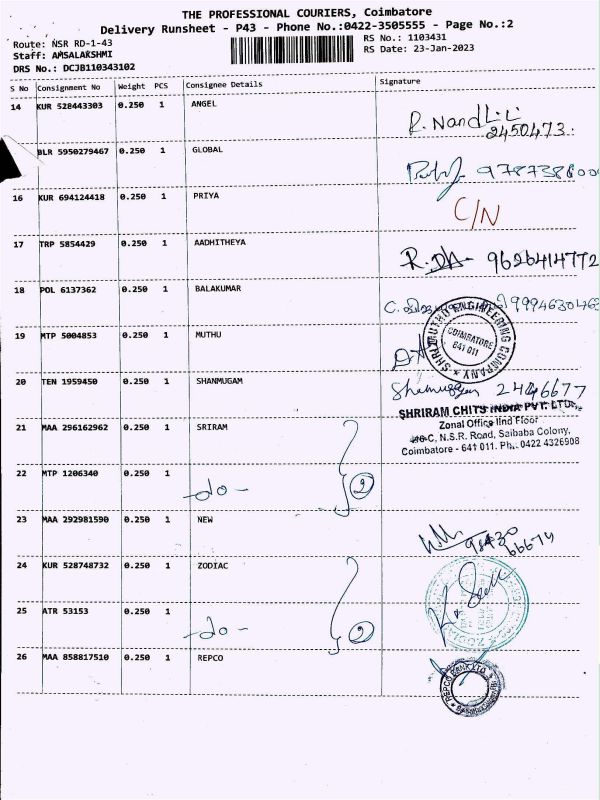 THE PROFESSIONAL COURIERS, Coimbatore
Delivery Runsheet - P43 - Phone No.:0422-3505555 - Page No.:2
Route: NSR RD-1-43
RS No.: 1103431
Staff: AMSALAKSHMI
RS Date: 23-Jan-2023
DRS No.: DCJB110343102
S No Consignment No Weight PCS Consignee Details Signature
14 KUR 528443303 0.250 1 ANGEL
R. Nand
2450473
BLR 5950279467 0.250 1 GLOBAL
16 KUR 694124418 0.250 1 PRIYA C/N
17 TRP 5854429 0.250 1 AADHITHEYA
9626414772
18 POL 6137362 0.250 1 BALAKUMAR
SHRI MUTHU ENGINEERING COMPANY
COIMBATORE
641 011
19 MTP 5004853 0.250 1 MUTHU
20 TEN 1959450 0.250 1 SHANMUGAM 2446677
SHRIRAM CHITS INDIA PVT. LTD.,
Zonal Office IInd Floor
C, N.S.R. Road, Saibaba Colony,
Coimbatore - 641 011. Ph.: 0422 4326908
21 MAA 296162962 0.250 1 SRIRAM
22 MTP 1206340 0.250 1
-do- 2
23 MAA 292981590 0.250 1 NEW
98430
66674
24 KUR 528748732 0.250 1 ZODIAC
25 ATR 53153 0.250 1
-do- 2
26 MAA 858817510 0.250 1 REPCO
REPCO BANK LTD